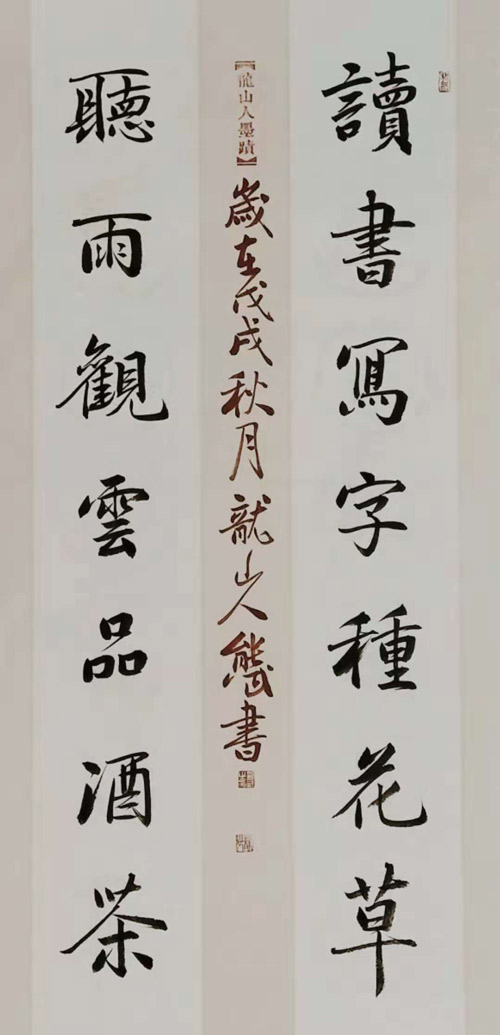 讀書寫字種花草
聽雨觀雲品酒茶
【龍山人墨蹟】
歲在戊戌秋月龍山人 書